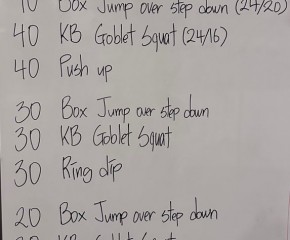 10 Box Jump over step down (24/20)
40 KB Goblet Squat (24/16)
40 Push up
30 Box Jump over step down
30 KB Goblet Squat
30 Ring dip
20 Box Jump over step down
20 KB Goblet Squat